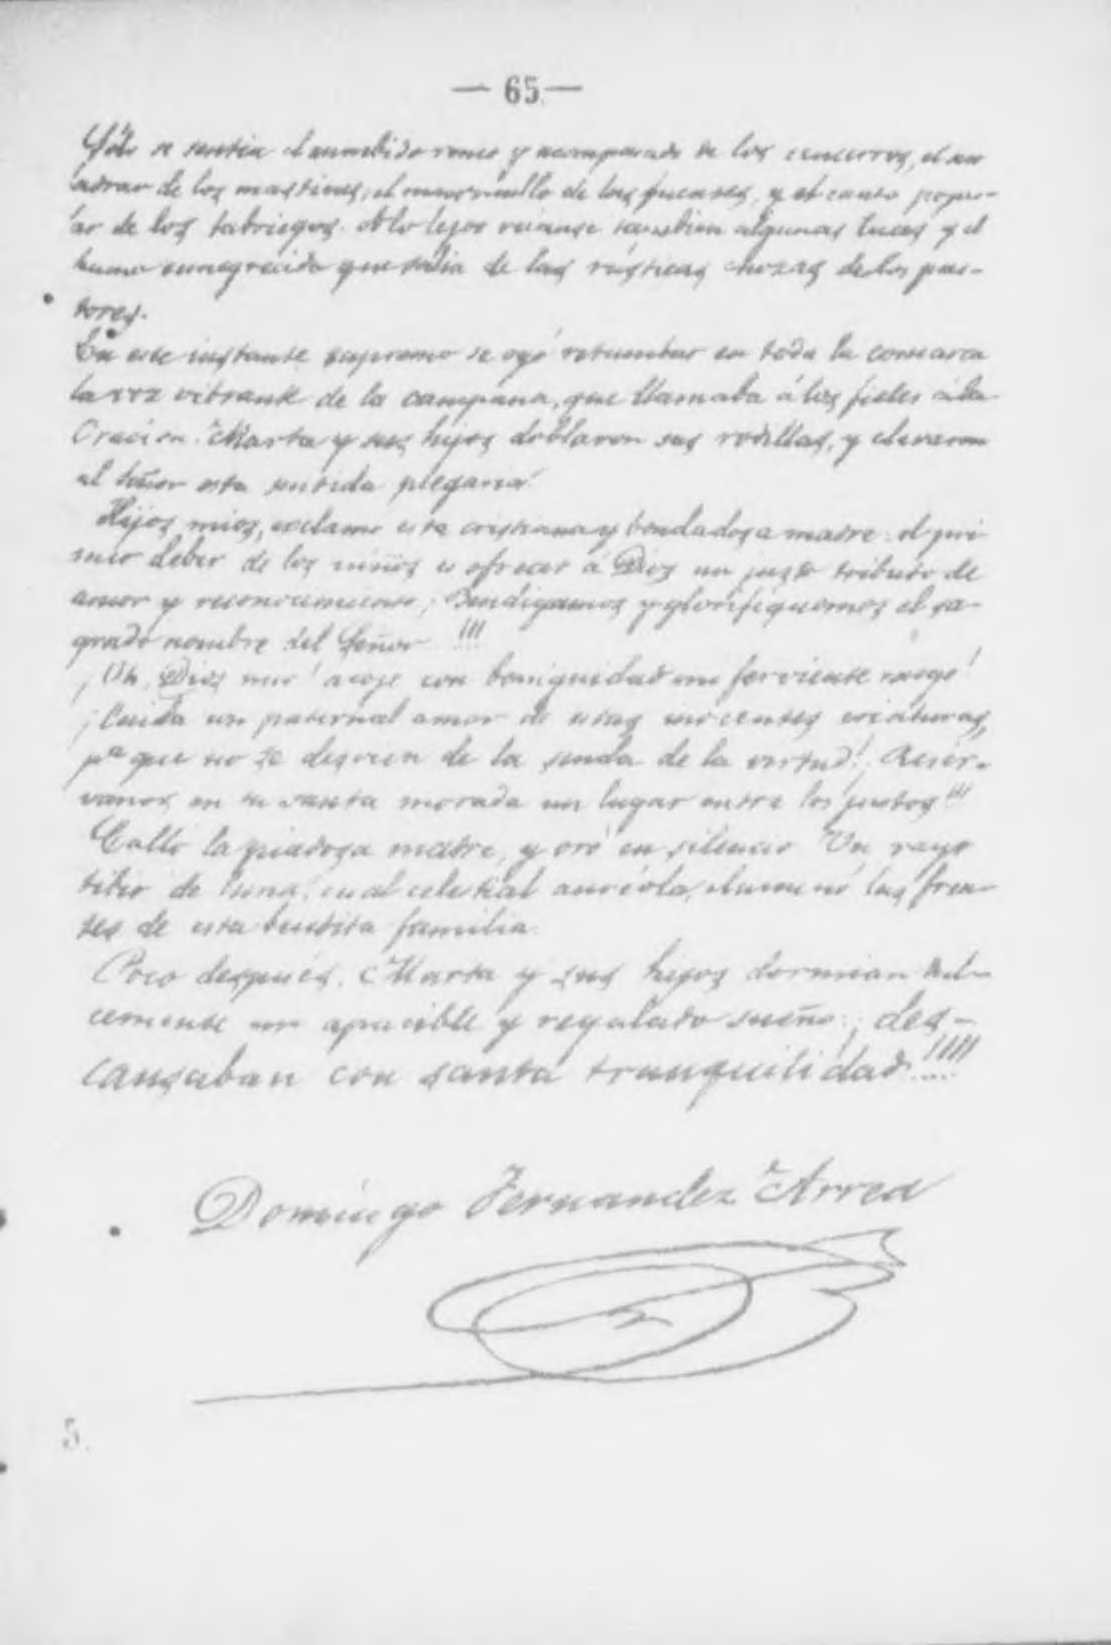 — 65 —
Sólo se sentía el zumbido ronco y acompasado de los cencerros, el
ladrar de los mastines, el murmullo de las fuentes, y el canto popu-
lar de los labriegos. A lo lejos veíanse tambien algunas luces y el
humo ennegrecido que salia de las rústicas chozas de los pas-
tores.
En este instante supremo se oyó retumbar en toda la comarca
la voz vibrante de la campana, que llamaba á los fieles á la
Oracion. Marta y sus hijos doblaron sus rodillas, y elevaron
al Señor esta sentida plegaria:
Hijos mios, exclamó esta cristiana y bondadosa madre: el pri
mer deber de los niños es ofrecer á Dios un justo tributo de
amor y reconocimiento; Bendigamos y glorifiquemos el sa-
grado nombre del Señor !!!
¡Oh, Dios mio! acoje con benignidad mi ferviente ruego!
¡Cuida con paternal amor de estas inocentes criaturas,
pª que no se desvien de la senda de la virtud! ¡Resér-
vanos en tu santa morada un lugar entre los justos!!!
Calló la piadosa madre, y oró en silencio. Un rayo
tibio de luna, cual celestial auréola, iluminó las fren-
tes de esta bendita familia.
Poco después, Marta y sus hijos dormian dul-
cemente un apacible y regalado sueño; ¡des-
cansaban con santa tranquilidad....!!!!!
Domingo Fernandez Arrea
5.